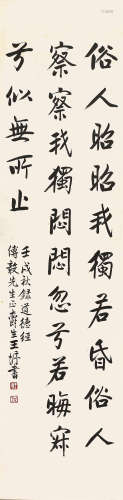 俗人昭昭我獨若昏俗人
察察我獨悶悶忽兮若晦寂
兮似無所止
壬戌秋錄道德經
傳毅先生正 爵生王垿書